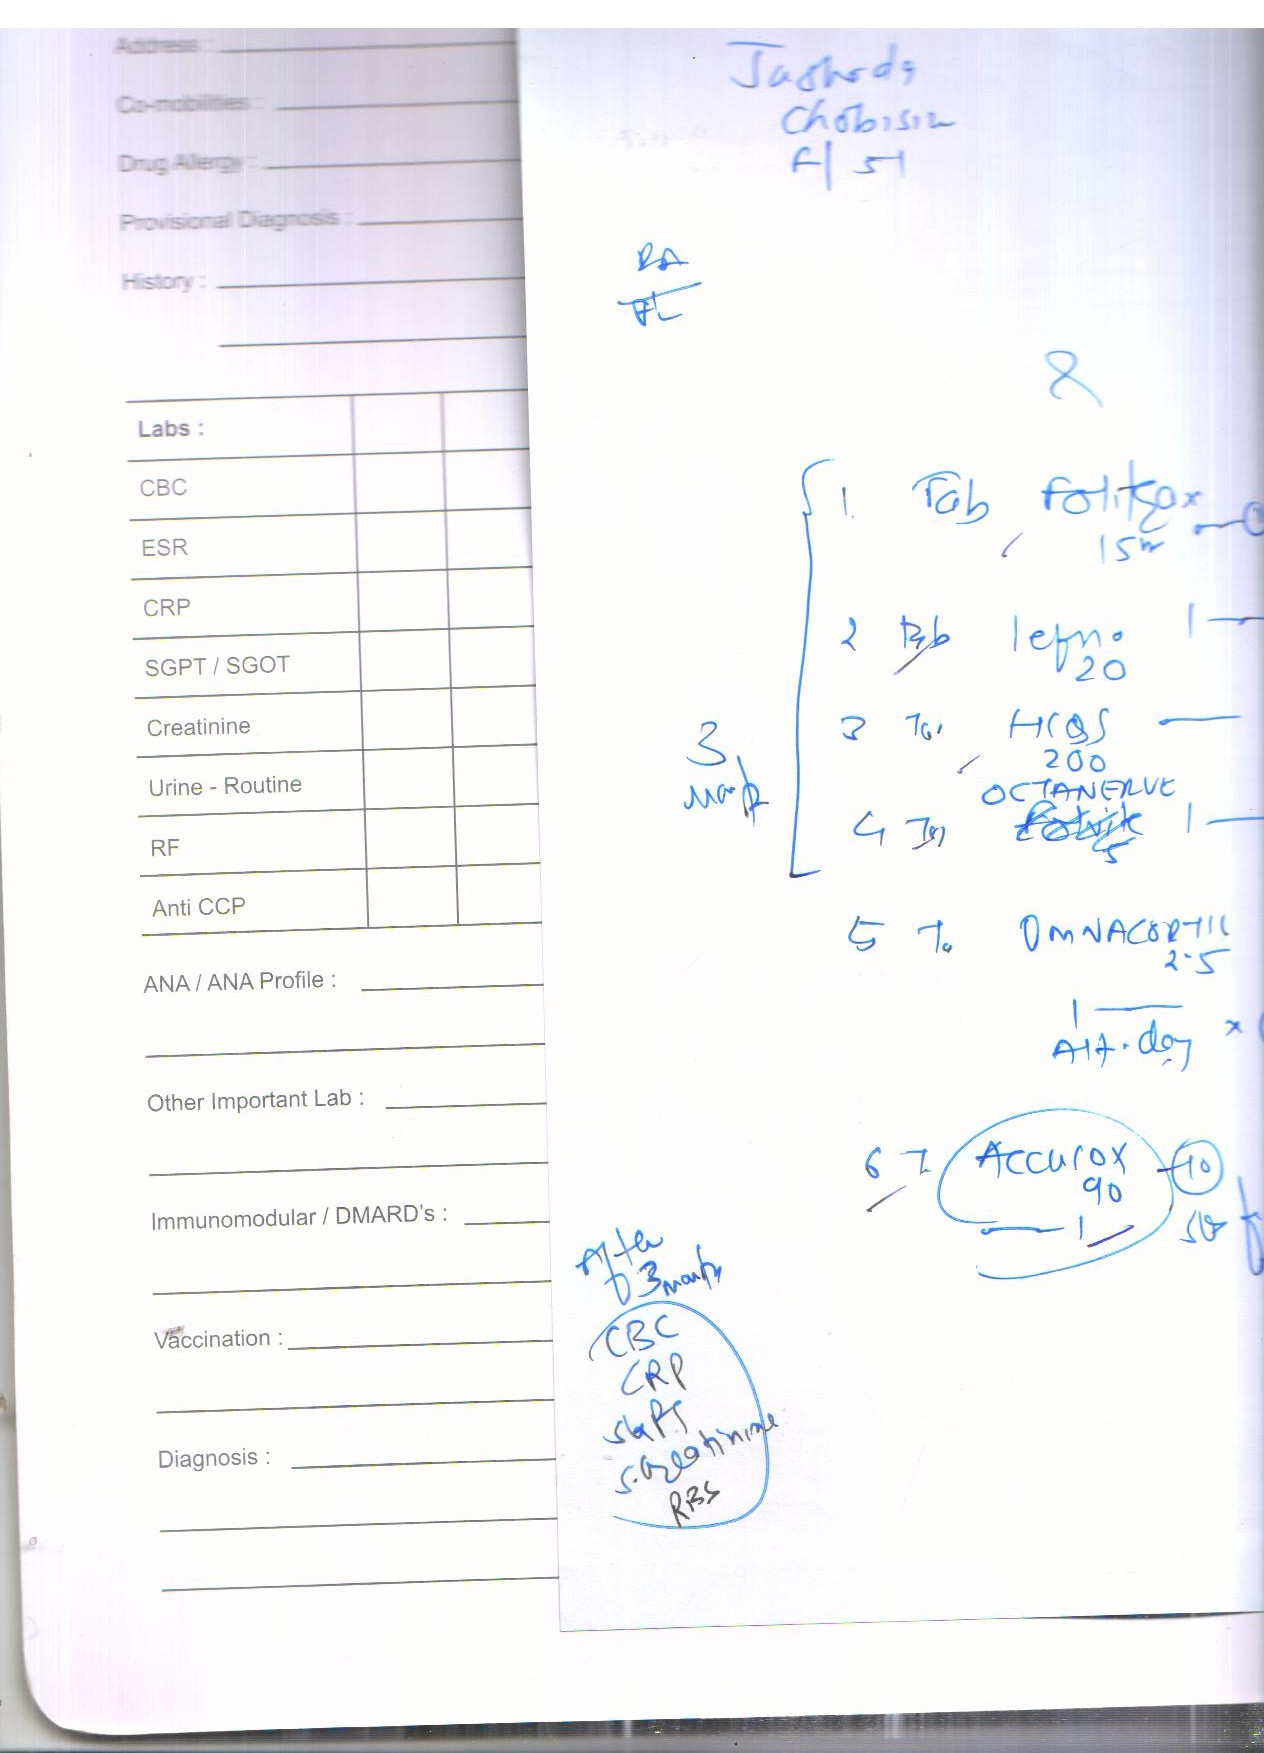 Address :
Co-mobilities :
Drug Allergy :
Provisional Diagnosis :
History :
Labs :
CBC
ESR
CRP
SGPT / SGOT
Creatinine
Urine - Routine
RF
Anti CCP
ANA / ANA Profile :
Other Important Lab :
Immunomodular / DMARD's :
Vaccination :
Diagnosis :
F/51
RA
1. Tab Folitrax
15
2 Tab lefno 1
20
3 Ta. HCQS
200
OCTANERVE
4 Ta 1
5 Ta OMNACORTIL
2.5
1
Alt. day x
6 T. Accurox 10
90
1
3
month
After
3 month
CBC
CRP
SGPT
S. Creatinine
RBS